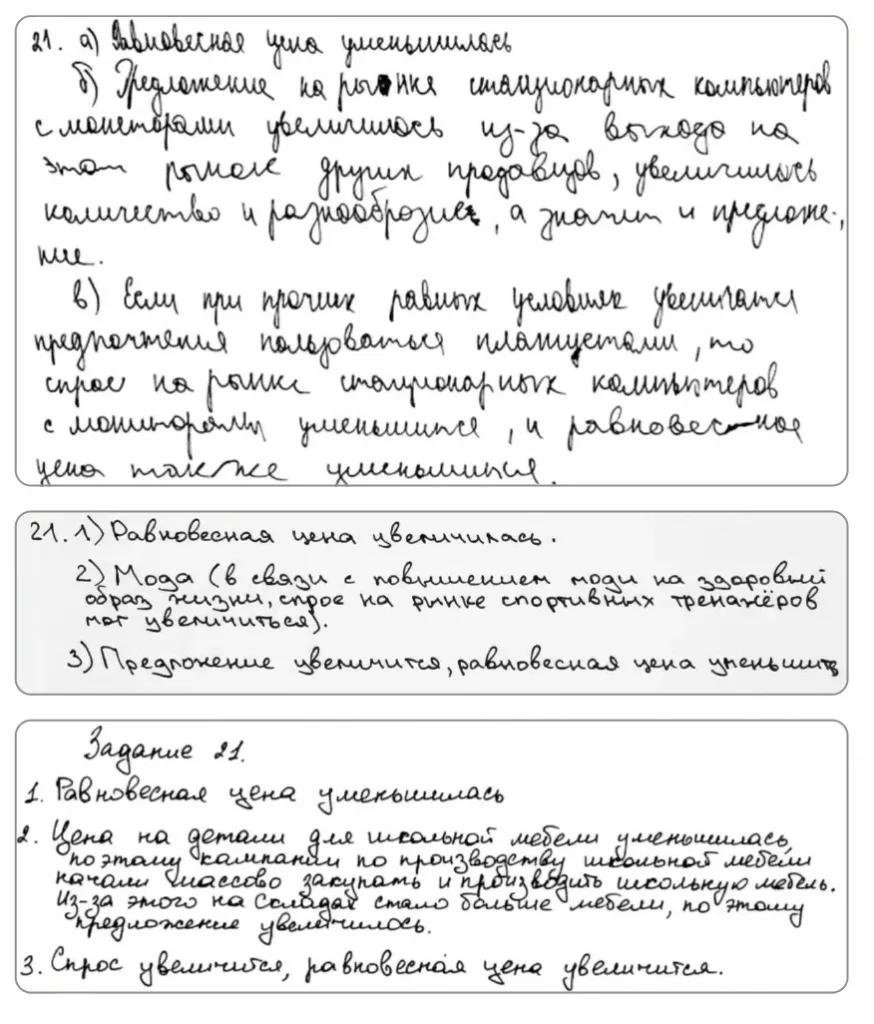 21. а) Равновесная цена уменьшилась
б) Предложение на рынке стационарных компьютеров
с мониторами увеличилось из-за выхода на
этот рынок других продавцов, увеличилось
количество и разнообразие, а значит и предложе-
ние.
в) Если при прочих равных условиях увеличатся
предпочтения пользоваться планшетами, то
спрос на рынке стационарных компьютеров
с мониторами уменьшится, и равновесная
цена также уменьшится.
21. 1) Равновесная цена увеличилась.
2) Мода (в связи с повышением моды на здоровый
образ жизни, спрос на рынке спортивных тренажёров
мог увеличиться).
3) Предложение увеличится, равновесная цена уменьшится
Задание 21.
1. Равновесная цена уменьшилась
2. Цена на детали для школьной мебели уменьшилась,
поэтому кампании по производству школьной мебели
начали массово закупать и производить школьную мебель.
Из-за этого на складах стало больше мебели, по этому
предложение увеличилось.
3. Спрос увеличится, равновесная цена увеличится.